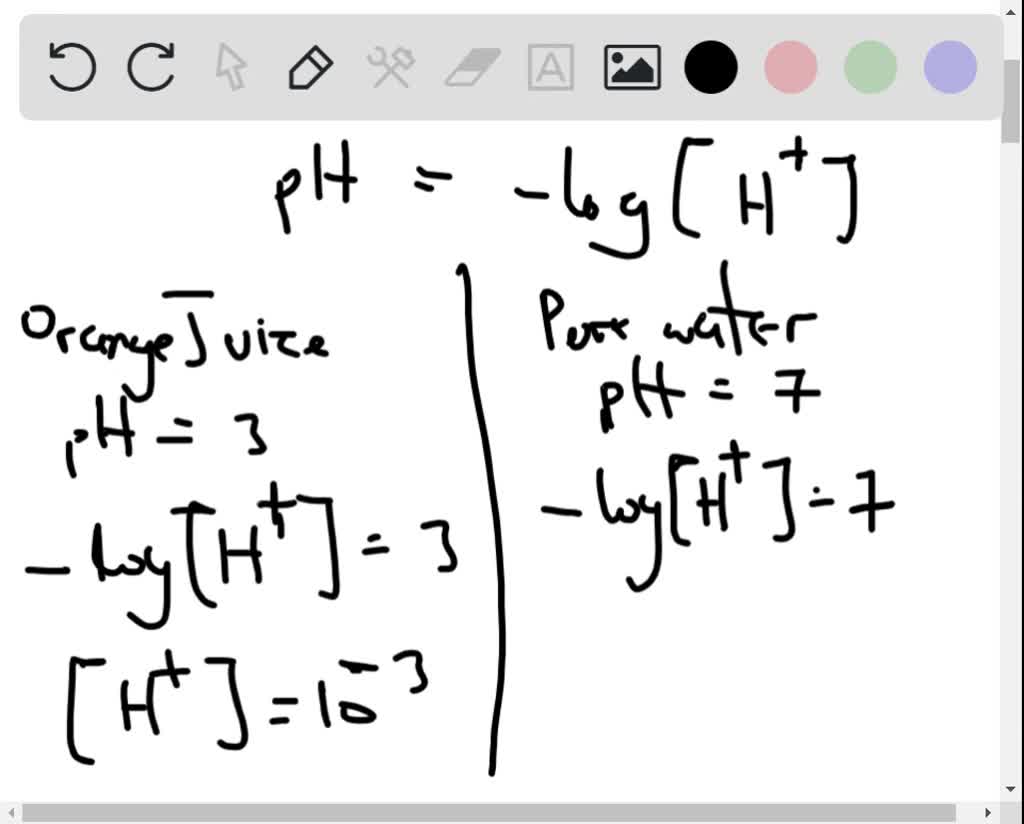 pH = -log[H⁺]
Orange Juice
pH = 3
-log[H⁺] = 3
[H⁺] = 10⁻³
Pure water
pH = 7
-log[H⁺] = 7